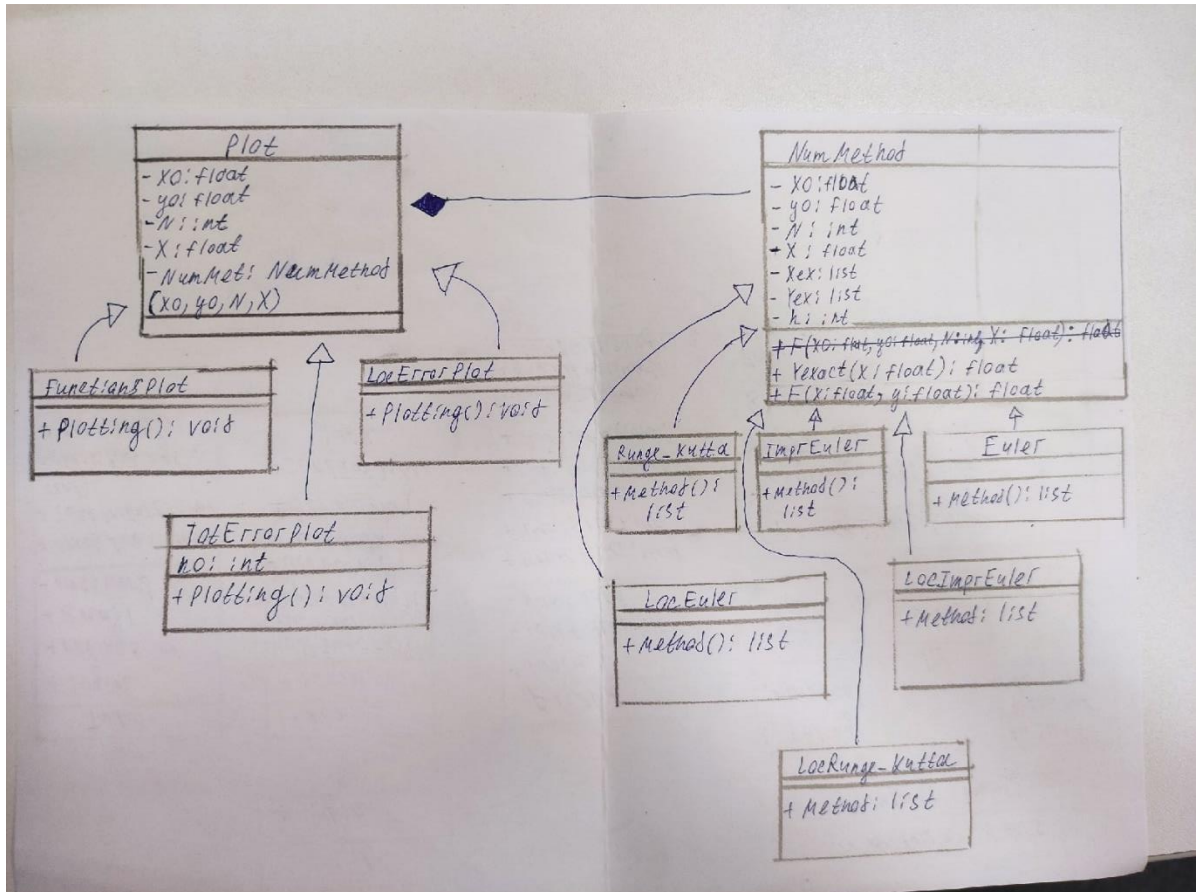 Plot
- X0: float
- y0: float
- N: int
- X: float
- NumMet: NumMethod
(X0, y0, N, X)
FunctionsPlot
+ Plotting(): void
LocErrorPlot
+ Plotting(): void
TotErrorPlot
n0: int
+ Plotting(): void
NumMethod
- X0: float
- y0: float
- N: int
- X: float
- Xex: list
- Yex: list
- h: int
+ F(X0: float, y0: float, N: int, X: float): float
+ Yexact(x: float): float
+ F(x: float, y: float): float
Runge_Kutta
+ Method():
list
ImprEuler
+ Method():
list
Euler
+ Method(): list
LocEuler
+ Method(): list
LocImprEuler
+ Method: list
LocRunge_Kutta
+ Method: list